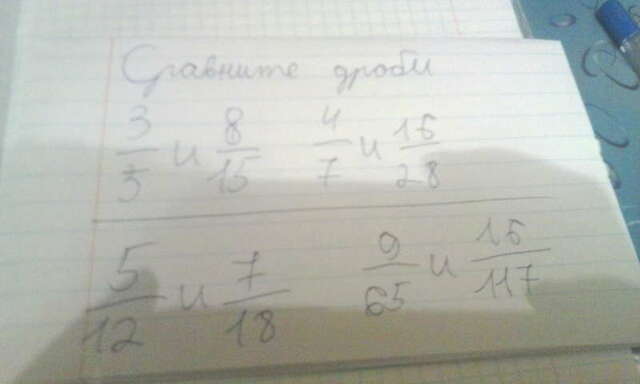 Сравните дроби
3/5 и 8/15 4/7 и 16/28
5/12 и 7/18 9/65 и 16/117